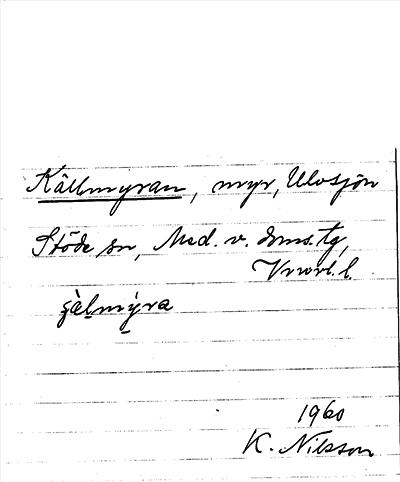 Källmyran, myr, Ulvsjön
Stöde sn, Med. v. doms.tg,
Vnorl. l.
şàlmýra
1960
K. Nilsson